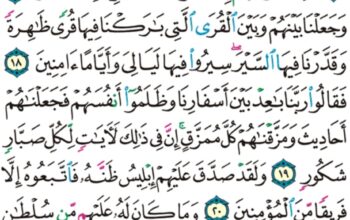 وَجَعَلْنَا بَيْنَهُمْ وَبَيْنَ ٱلْقُرَى ٱلَّتِى بَٰرَكْنَا فِيهَا قُرًى ظَٰهِرَةً
وَقَدَّرْنَا فِيهَا ٱلسَّيْرَ ۖ سِيرُوا۟ فِيهَا لَيَالِىَ وَأَيَّامًا ءَامِنِينَ ١٨
فَقَالُوا۟ رَبَّنَا بَٰعِدْ بَيْنَ أَسْفَارِنَا وَظَلَمُوٓا۟ أَنفُسَهُمْ فَجَعَلْنَٰهُمْ
أَحَادِيثَ وَمَزَّقْنَٰهُمْ كُلَّ مُمَزَّقٍ ۚ إِنَّ فِى ذَٰلِكَ لَءَايَٰتٍ لِّكُلِّ صَبَّارٍ
شَكُورٍ ١٩ وَلَقَدْ صَدَّقَ عَلَيْهِمْ إِبْلِيسُ ظَنَّهُۥ فَٱتَّبَعُوهُ إِلَّا
فَرِيقًا مِّنَ ٱلْمُؤْمِنِينَ ٢٠ وَمَا كَانَ لَهُۥ عَلَيْهِم مِّن سُلْطَٰنٍ